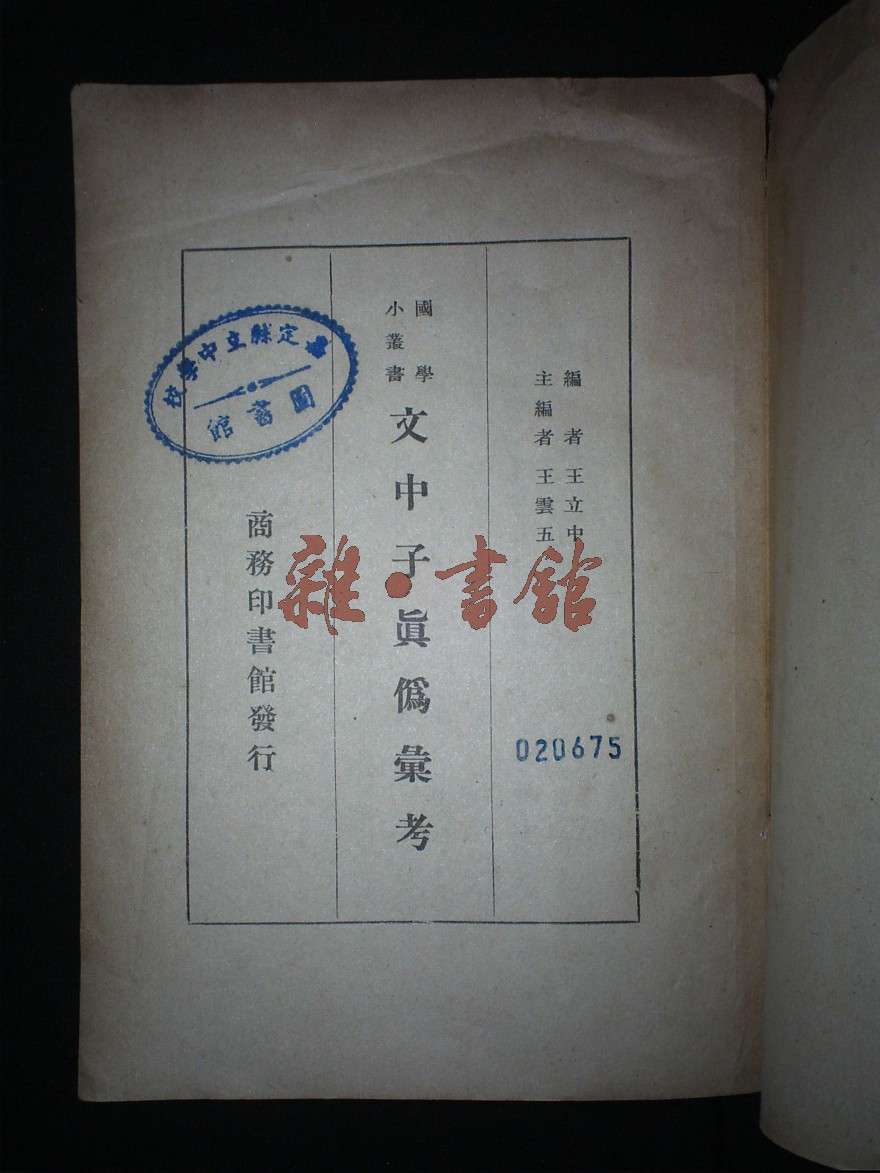 編者 王立中
主編者 王雲五
020675
國學
小叢書
文中子眞僞彙考
商務印書館發行
定縣立中學校
圖書館
雜·書館